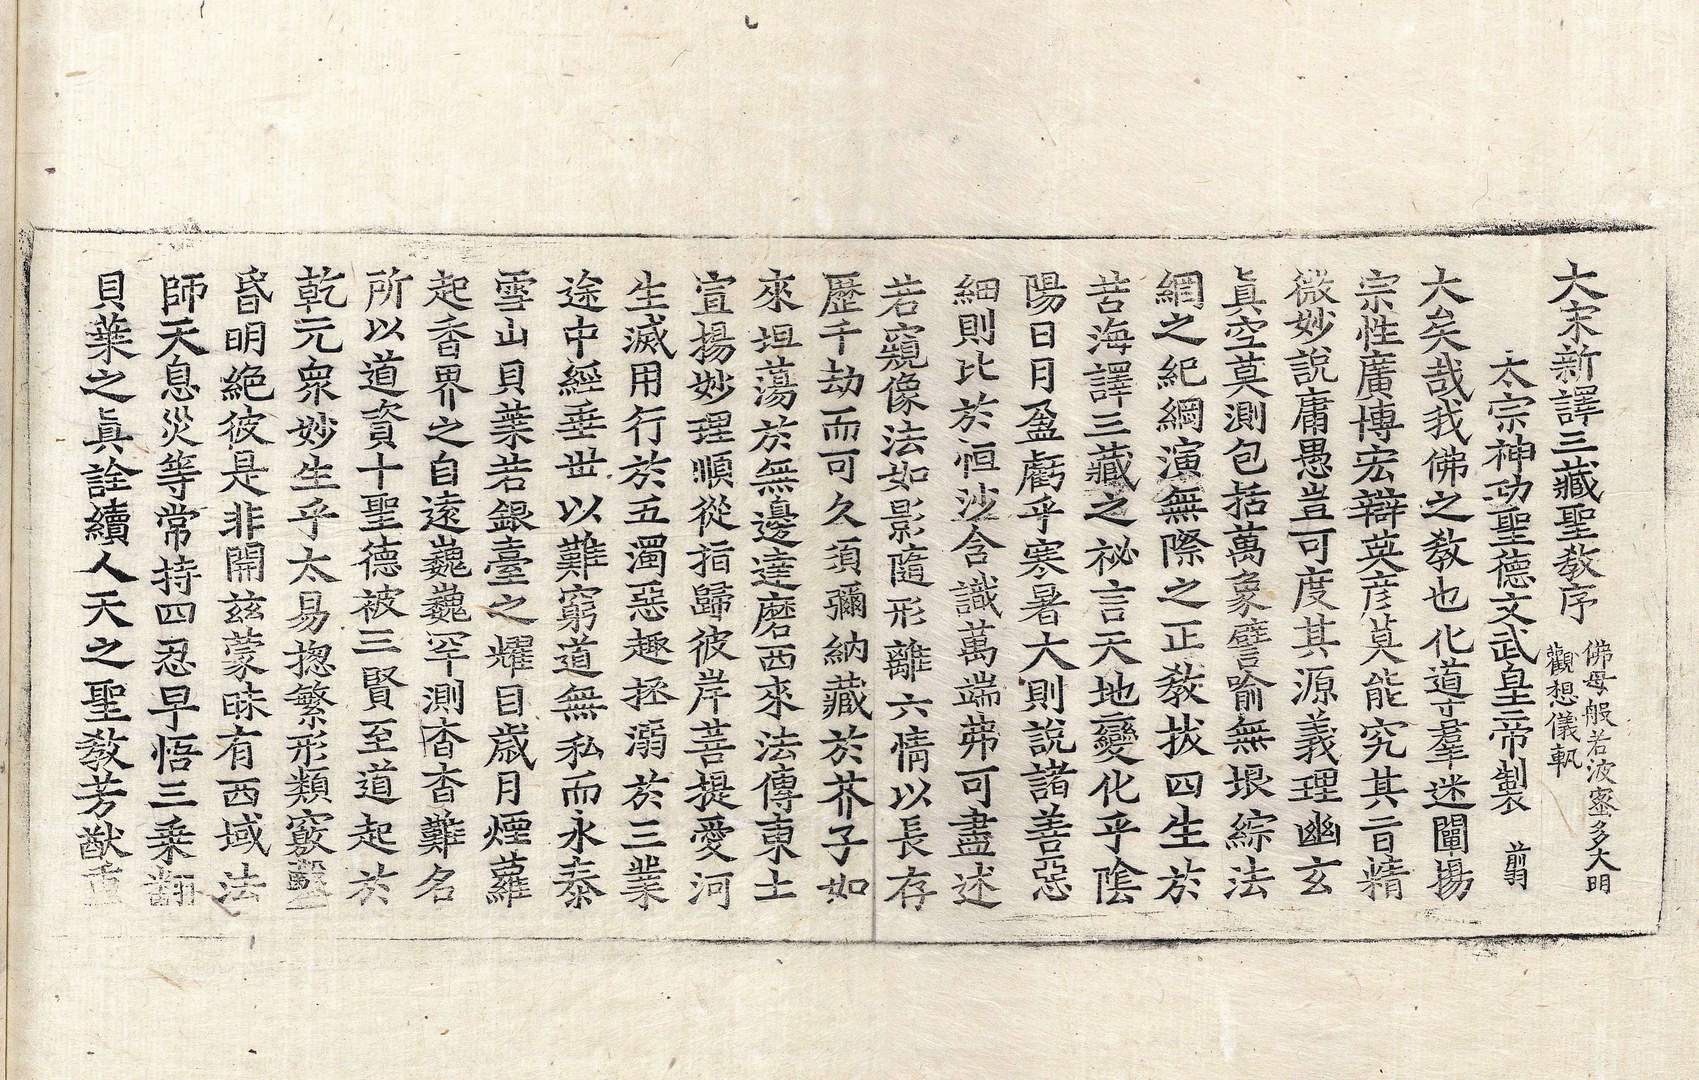 大宋新譯三藏聖教序
佛母般若波蜜多大明
觀想儀軌
太宗神功聖德文武皇帝製 翦
大矣哉我佛之教也化導羣迷闡揚
宗性廣博宏辯英彦莫能究其旨精
微妙說庸愚豈可度其源義理幽玄
眞空莫測包括萬象譬喻無垠綜法
網之紀綱演無際之正教拔四生於
苦海譯三藏之祕言天地變化乎陰
陽日月盈虧乎寒暑大則說諸善惡
細則比於恒沙含識萬端弗可盡述
若窺像法如影隨形離六情以長存
歷千劫而可久須彌納藏於芥子如
來坦蕩於無邊達磨西來法傳東土
宣揚妙理順從指歸彼岸菩提愛河
生滅用行於五濁惡趣拯溺於三業
途中經垂世以難窮道無私而永泰
雪山貝葉若銀臺之耀目歲月煙蘿
起香界之自遠巍巍罕測杳杳難名
所以道資十聖德被三賢至道起於
乾元衆妙生乎太易揔繁形類竅鑿
昏明絶彼是非開茲蒙昧有西域法
師天息災等常持四忍早悟三乘翻
貝葉之眞詮續人天之聖教芳猷重